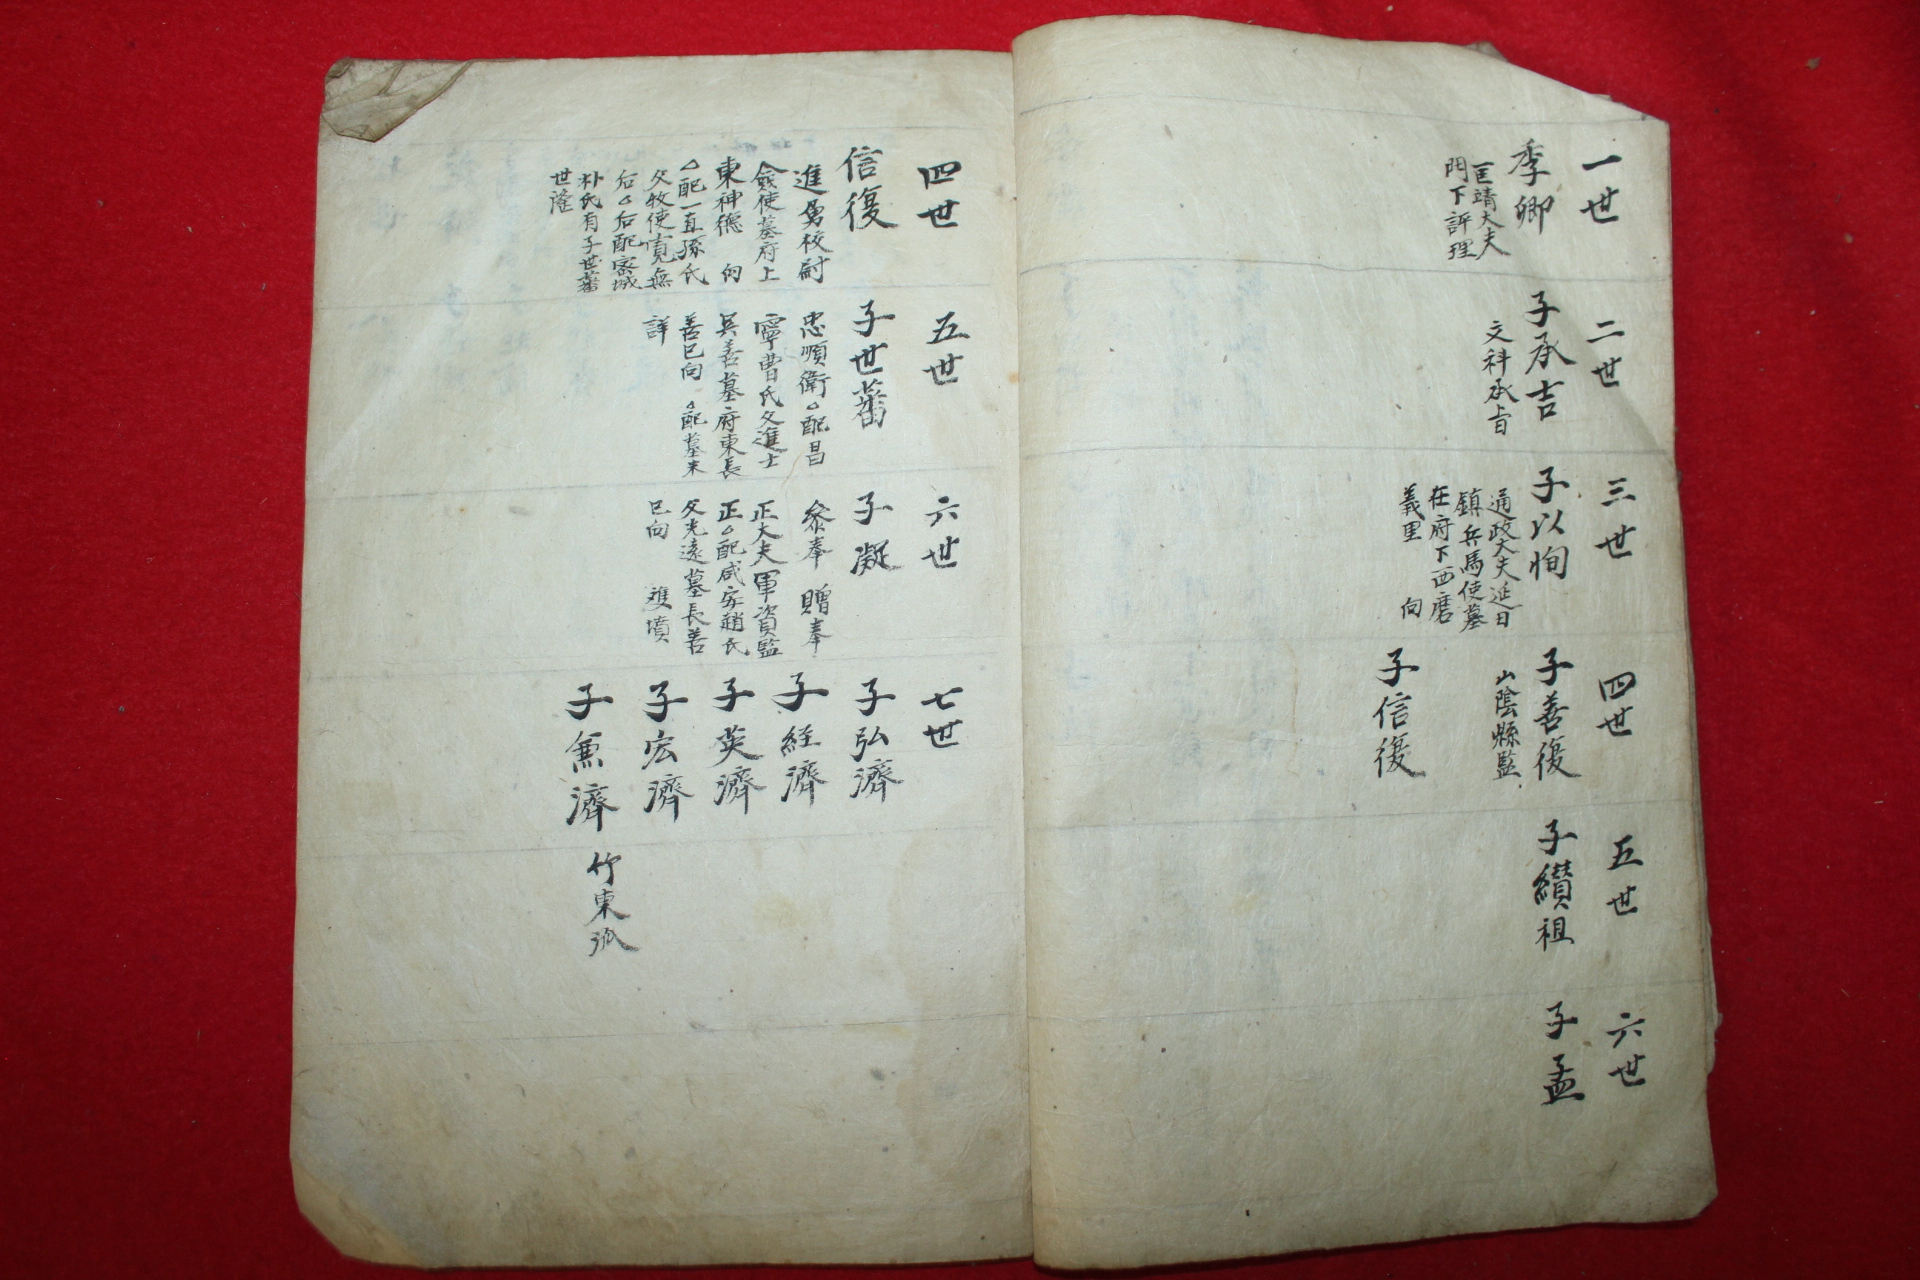 一世
季卿
匡靖大夫
門下評理
二世
子承吉
文科承旨
三世
子以恂
通政大夫延日
鎮兵馬使墓
在府下西磨
義里 向
四世
子善復
山陰縣監
子信復
五世
子纘祖
六世
子孟
四世
信復
進勇校尉
僉使墓府上
東神德 向
△配一直孫氏
父牧使寬無
后△后配密城
朴氏有子世蕃
世隆
五世
子世蕃
忠順衛△配昌
寧曺氏父進士
吳善墓府東長
善巳向 △配墓未
詳
六世
子凝
參奉 贈奉
正大夫軍資監
正△配咸安趙氏
父光遠墓長善
巳向 雙墳
七世
子弘濟
子経濟
子英濟
子宏濟
子兼濟
竹東派